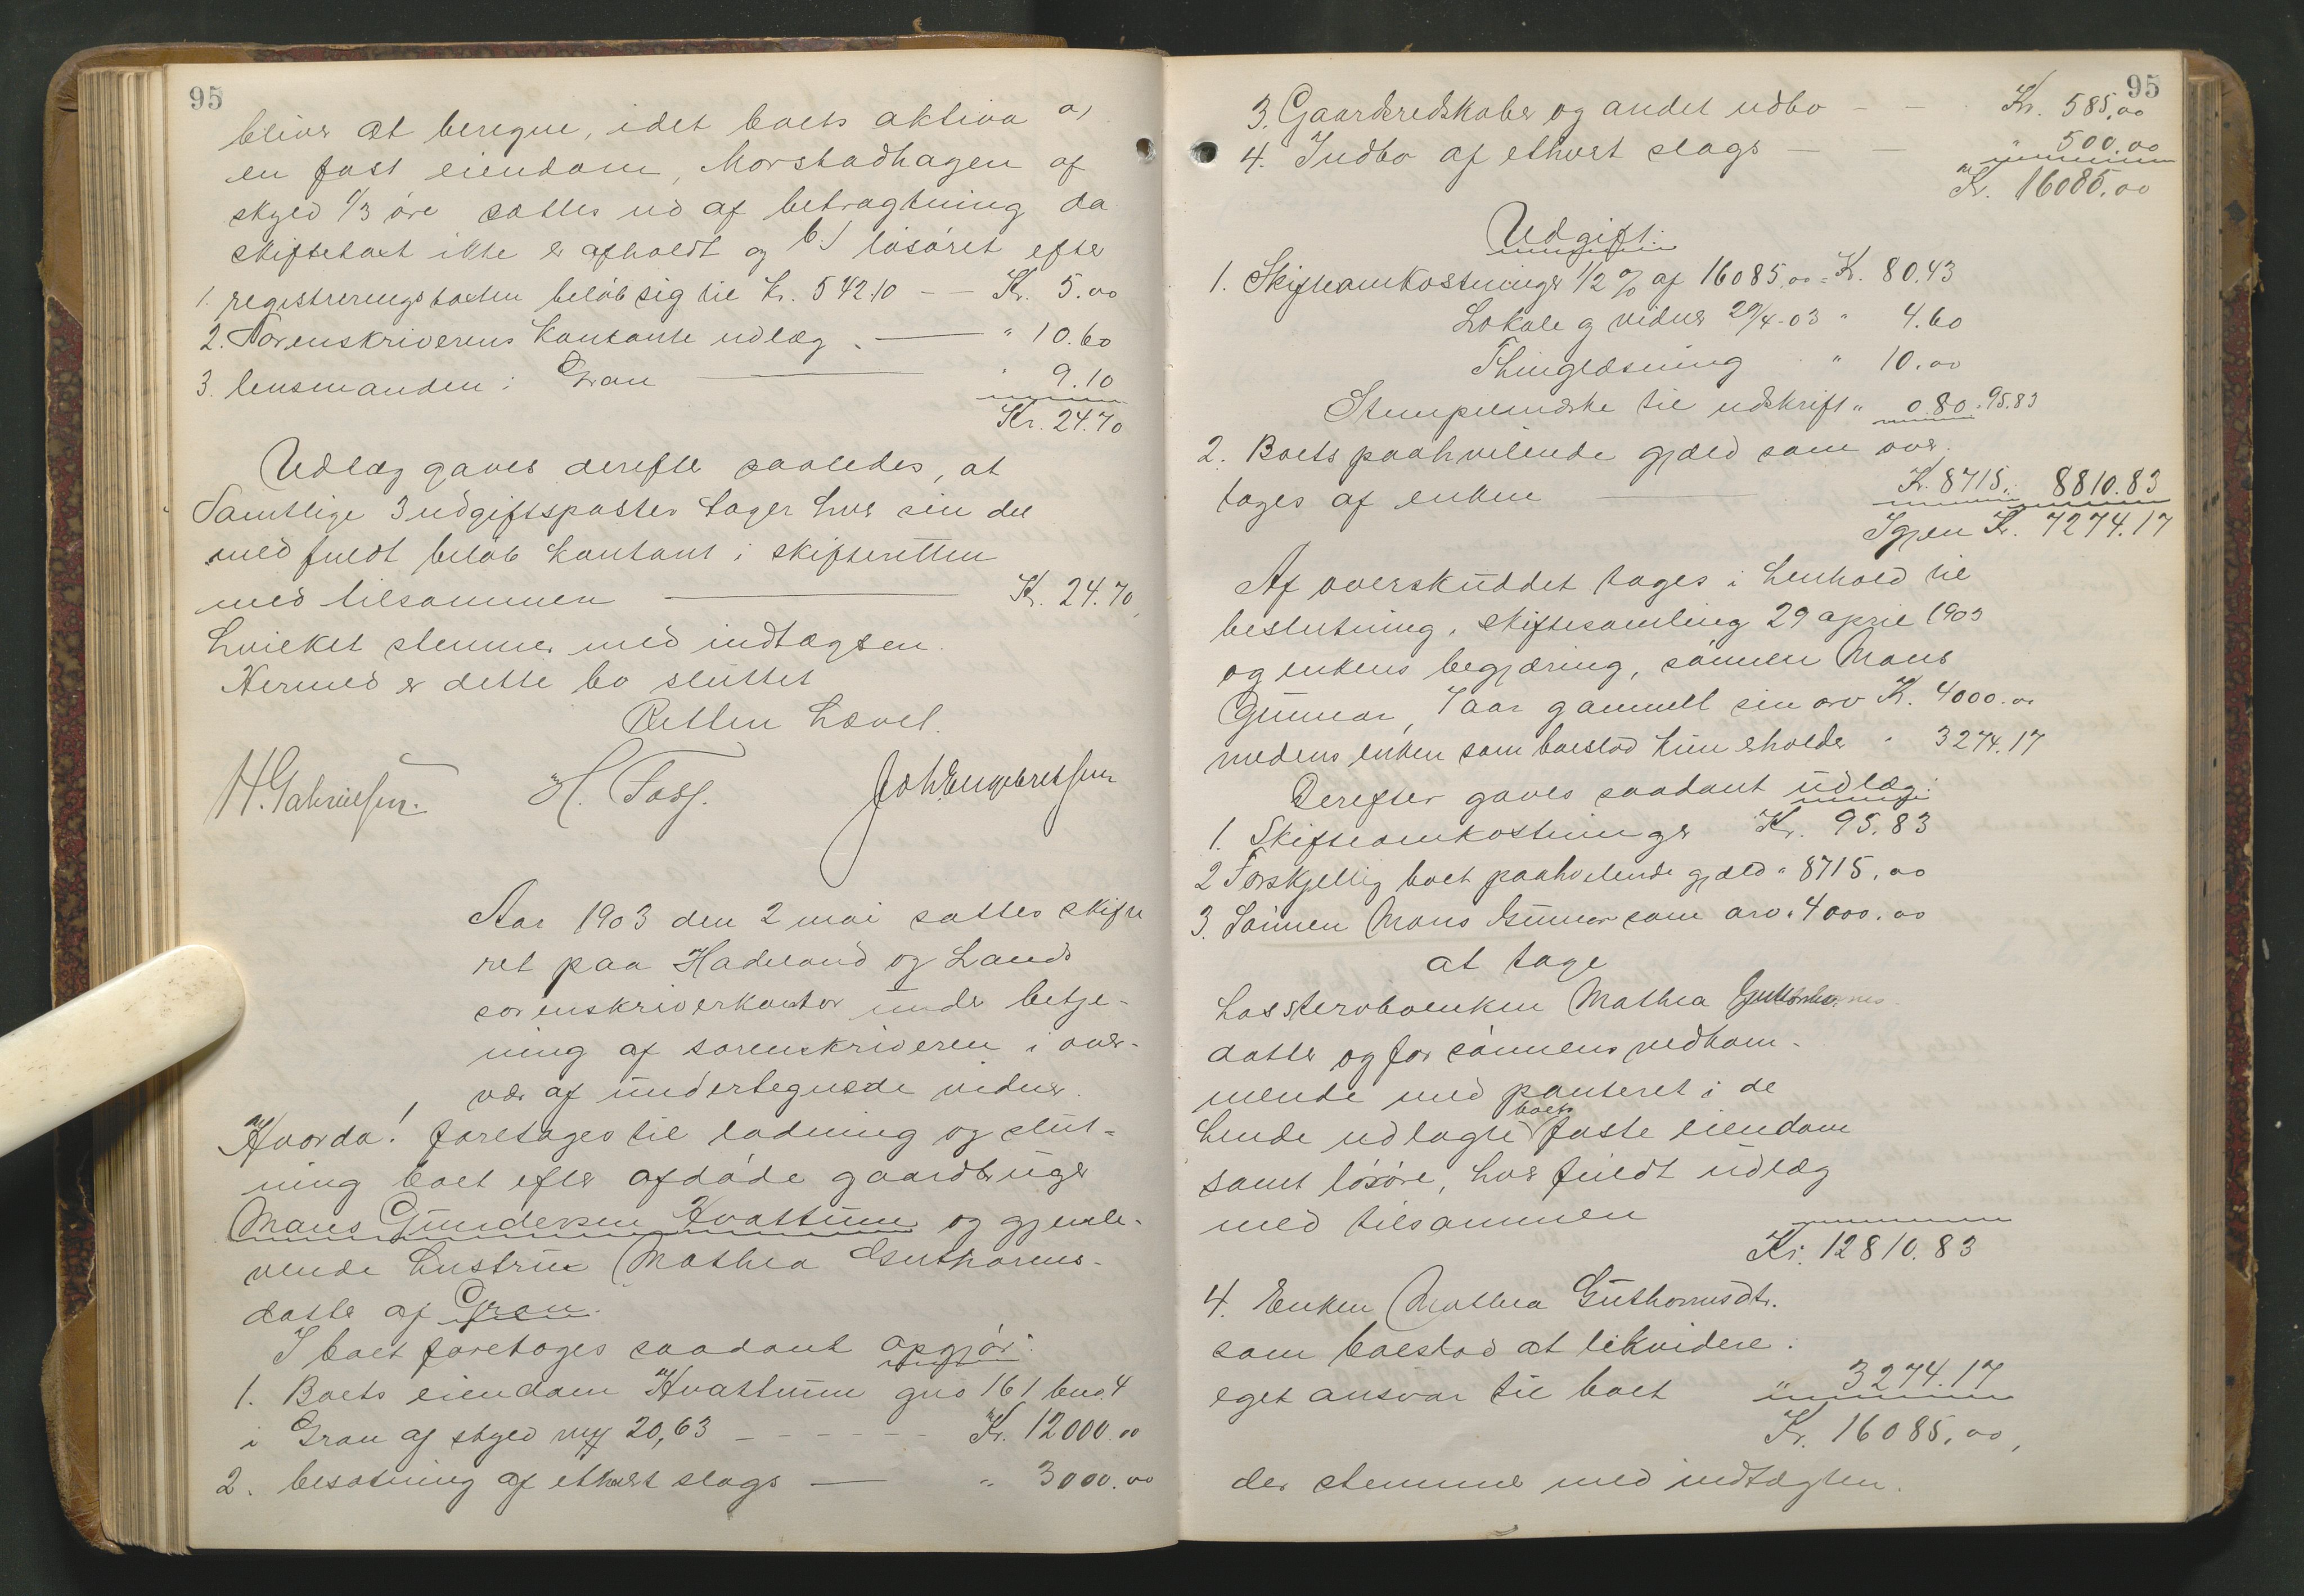 95
bliver at beregne, idet boets aktiva a)
en fast eiendom, Morstadhagen af
skyld 1/3 øre sattes ud af betragtning da
skiftetaxt ikke er afholdt og b.) løsøret efter
1. registreringstaxten beløb sig til Kr. 542.10 — Kr. 5.00
2. Sorenskriverens kontante udlæg. — " 10.60
3. lensmanden i Gran — " 9.10
Kr. 24.70
Udlæg gaves derefter saaledes, at
Samtlige 3 udgiftsposter tager hver sin del
med fuldt beløb kontant i skifteretten
med tilsammen — Kr. 24.70,
hvilket stemmer med indtægten.
Hermed er dette bo sluttet
Retten hævet.
H. Gabrielsen. H. Foss. Joh Engebretsen
Aar 1903 den 2 mai sattes skifte
ret paa Hadeland og Lands
sorenskriverkontor under betje-
ning af sorenskriveren i over-
vær af undertegnede vidner.
Hvorda! foretages til lodning og slut-
ning boet efter afdøde gaardbruger
Mans Gundersen Hvattum og gjenle-
vende hustru Mathea Guthorms-
datter af Gran.
I boet foretoges saadant opgjør:
1. Boets eiendom Hvattum gno 161 bno. 4
i Gran af skyld my 20,63 - - - - - Kr. 12000.00
2. besætning af ethvert slags — " 3000.00
95
3. Gaardsredskaber og andet udbo - - Kr. 585,00
4. Indbo af ethvert slags — — " 500.00
Kr. 16085.00
Udgift:
1. Skifteomkostninger 1/2 % af 16085.00 = Kr. 80.43
Lokale og vidner 29/4-03 " 4.60
Thinglæsning " 10.00
Stempelmærke til udskrift " 0.80. 95.83
2. Boets paahvilende gjæld som over-
tages af enken — Kr. 8715.- 8810.83
Igjen Kr. 7274.17
Af overskuddet tages i henhold til
beslutning i skiftesamling 29 april 1903
og enkens begjæring, sønnen Mans
Gunnar, 7 aar gammel sin arv Kr. 4000.00
medens enken som boeslod kun erholder " 3274.17
Derefter gaves saadant udlæg:
1. Skifteomkostninger Kr. 95.83
2 Forskjellig boet paahvilende gjæld " 8715.00
3. Sønnen Mans Gunnar som arv " 4000.00
at tage
hos sterboenken Mathea Guthorms-
datter og for sønnens vedkom-
mende med panteret i de
hende udlagte boets faste eiendom
samt løsøre, hver fuldt udlæg
med tilsammen
Kr. 12810.83
4. Enken Mathea Guthormsdtr.
som boeslod at likvidere i
eget ansvar til boet " 3274.17
Kr. 16085,00,
der stemmer med indtægten.